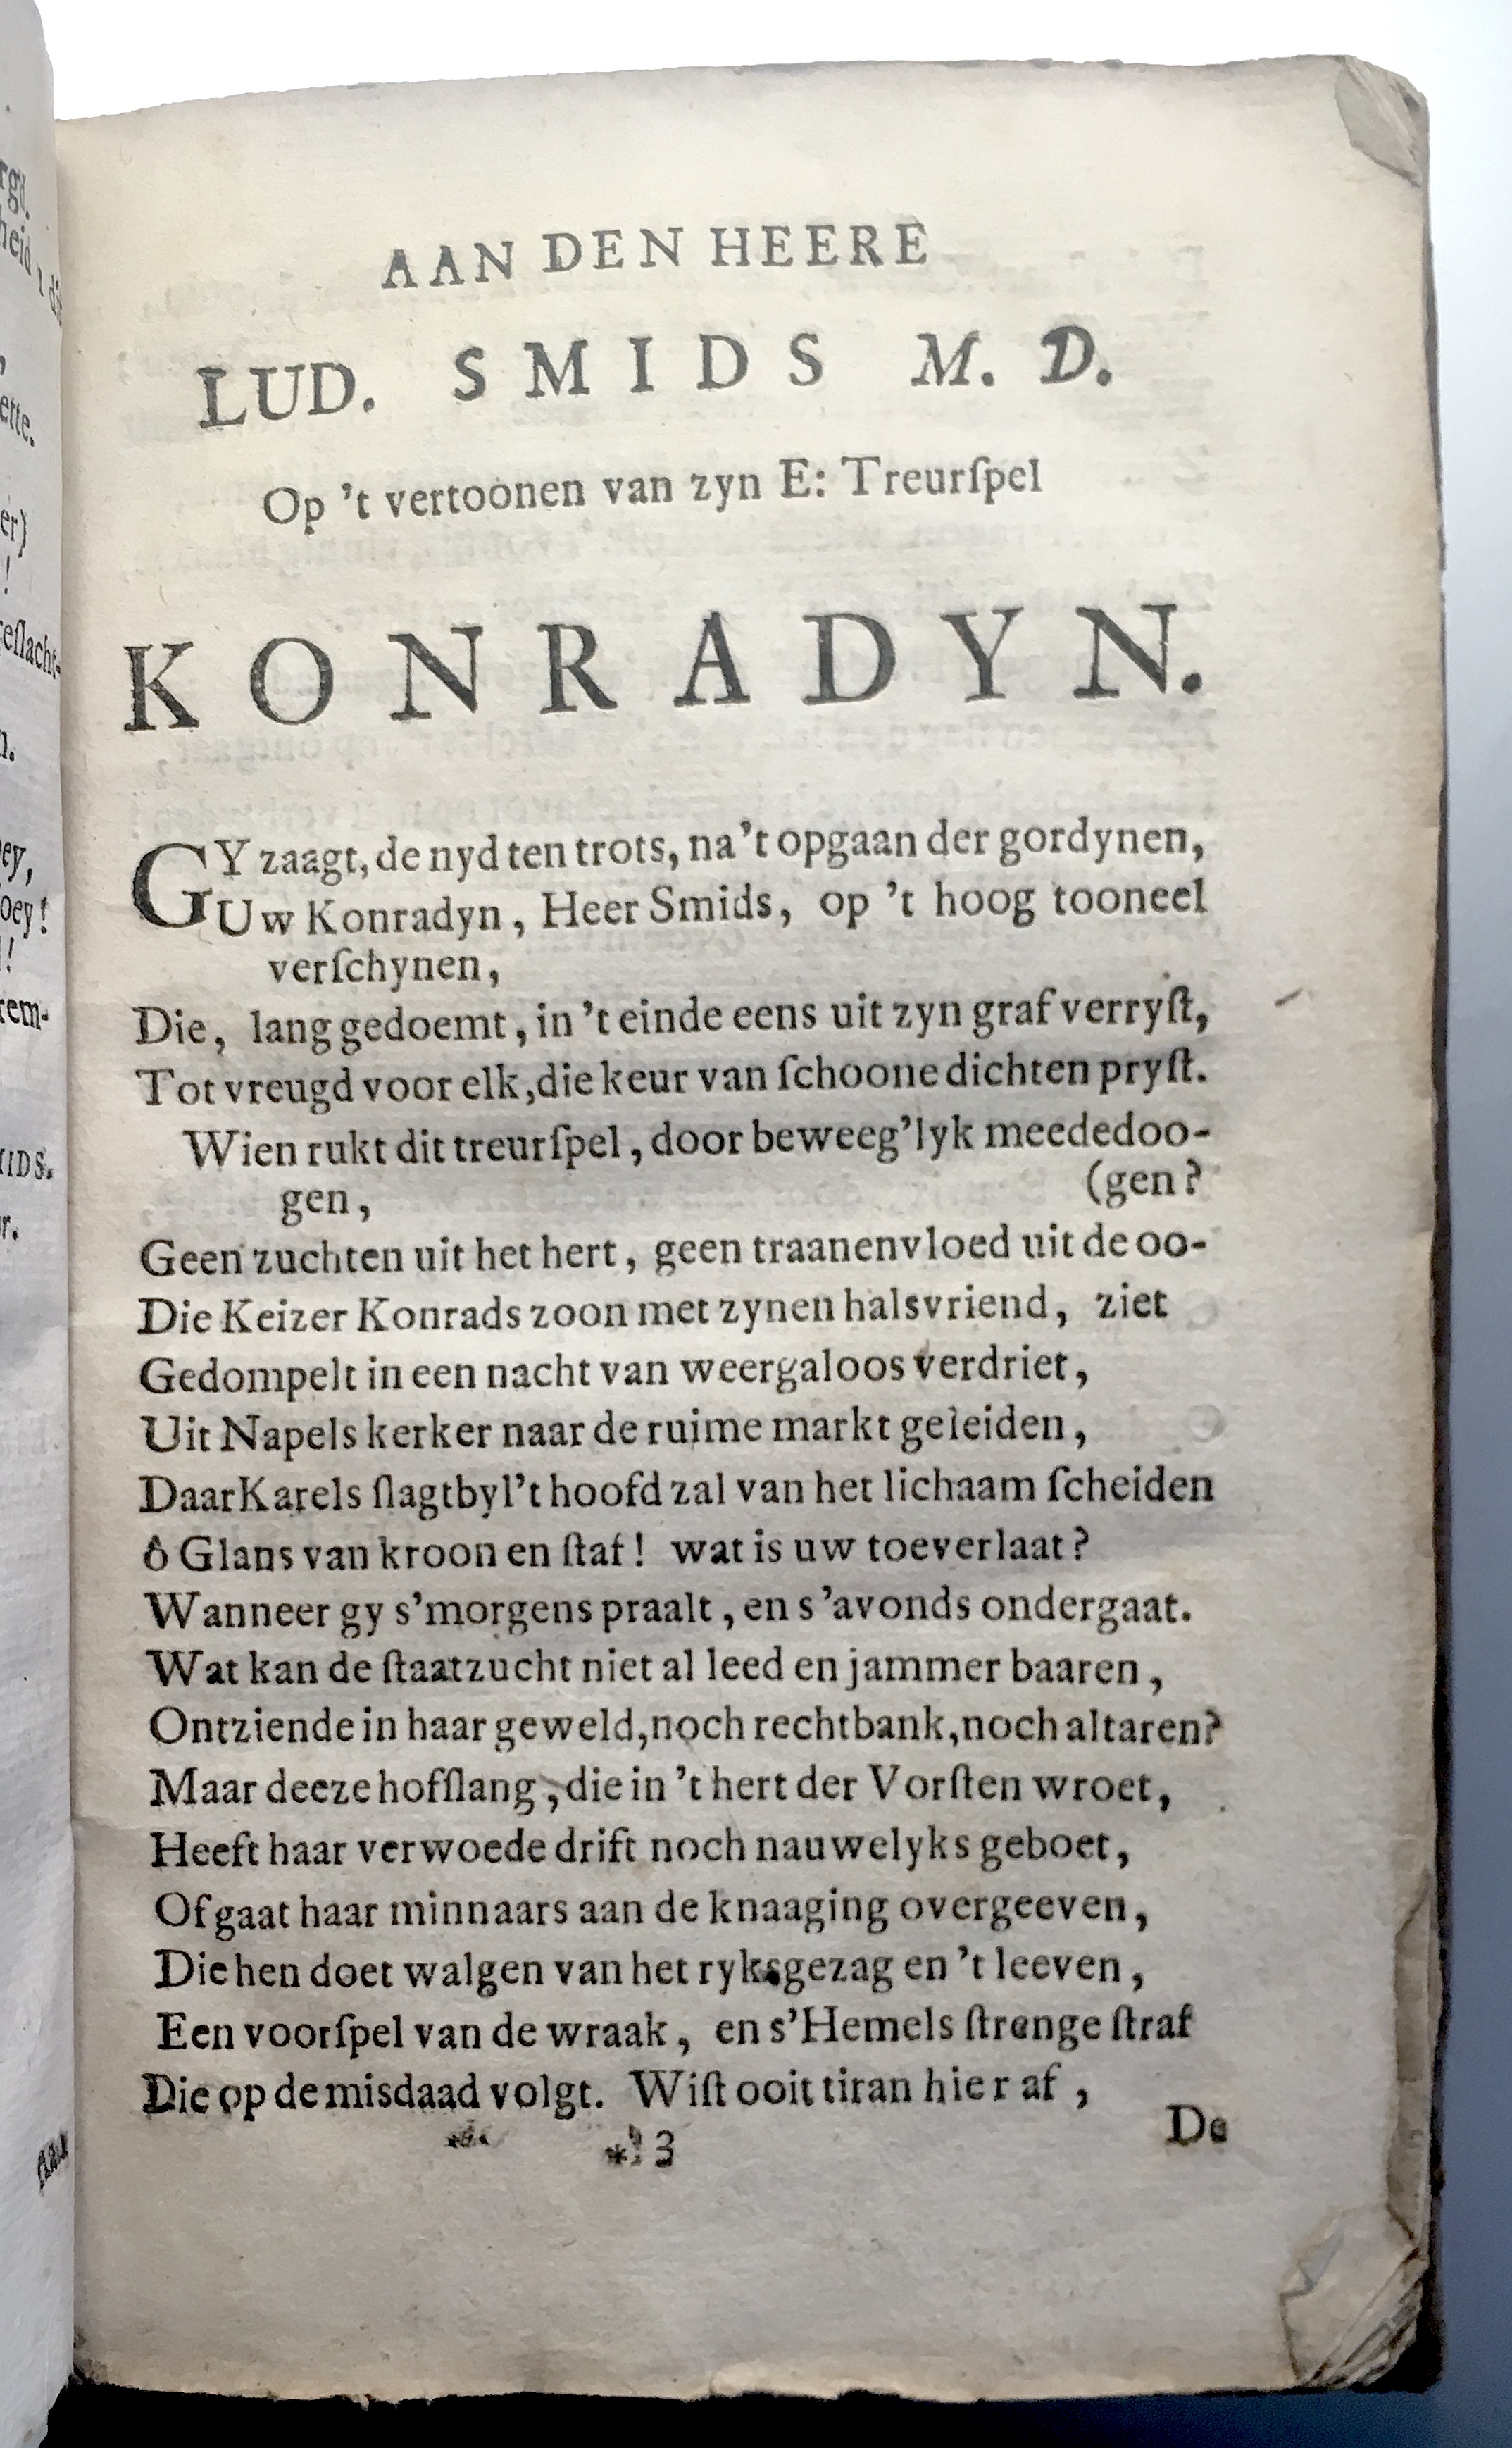 AAN DEN HEERE
LUD. SMIDS M. D.
Op 't vertoonen van zyn E: Treurſpel
KONRADYN.
GY zaagt, de nyd ten trots, na't opgaan der gordynen,
Uw Konradyn, Heer Smids, op 't hoog tooneel
verſchynen,
Die, lang gedoemt, in 't einde eens uit zyn graf verryſt,
Tot vreugd voor elk, die keur van ſchoone dichten pryſt.
Wien rukt dit treurſpel, door beweeg'lyk meededoo-
gen, (gen?
Geen zuchten uit het hert, geen traanenvloed uit de oo-
Die Keizer Konrads zoon met zynen halsvriend, ziet
Gedompelt in een nacht van weergaloos verdriet,
Uit Napels kerker naar de ruime markt geleiden,
Daar Karels ſlagtbyl't hoofd zal van het lichaam ſcheiden
ô Glans van kroon en ſtaf! wat is uw toeverlaat?
Wanneer gy s'morgens praalt, en s'avonds ondergaat.
Wat kan de ſtaatzucht niet al leed en jammer baaren,
Ontziende in haar geweld, noch rechtbank, noch altaren?
Maar deeze hofſlang, die in 't hert der Vorſten wroet,
Heeft haar verwoede drift noch nauwelyks geboet,
Of gaat haar minnaars aan de knaaging overgeeven,
Die hen doet walgen van het ryksgezag en 't leeven,
Een voorſpel van de wraak, en s'Hemels ſtrenge ſtraf
Die op de misdaad volgt. Wiſt ooit tiran hier af,
* 3 De
rgt.
heid
ette.
er)
!
eſlacht-
n.
ey,
oey!
!
rem-
MIDS.
r.